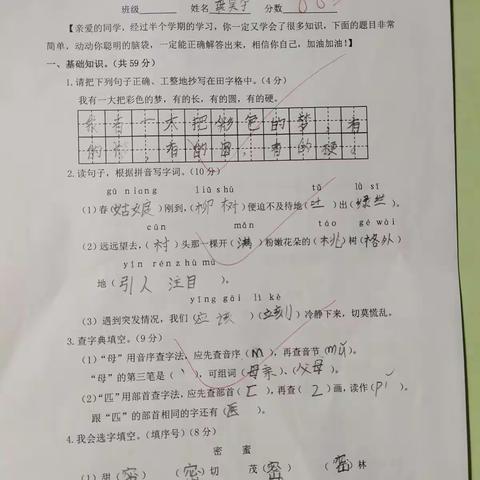 班级 姓名 分数
【亲爱的同学，经过半个学期的学习，你一定又学会了很多知识，下面的题目非常
简单，动动你聪明的脑袋，一定能正确解答出来，相信你自己，加油加油！】
一、基础知识。（共 59 分）
1. 请把下列句子正确、工整地抄写在田字格中。（4 分）
我有一大把彩色的梦，有的长，有的圆，有的硬。
我有一大把彩色的梦，有
的长，有的圆，有的硬。
2. 读句子，根据拼音写字词。（10 分）
gū niang liǔ shù tǔ lǜ sī
(1) 春（姑娘）刚到，（柳树）便迫不及待地（吐）出（绿丝）。
cūn mǎn táo gé wài
(2) 远远望去，（村）头那一棵开（满）粉嫩花朵的（桃）树（格外）
yǐn rén zhù mù
地（引人注目）。
yīng gāi lì kè
(3) 遇到突发情况，我们（应该）（立刻）冷静下来，切莫慌乱。
3. 查字典填空。（9 分）
(1) “母”用音序查字法，应先查音序（M），再查音节（mǔ）。
“母”的第三笔是（丶），可组词（母亲）、（父母）。
(2) “匹”用部首查字法，应先查部首（匚），再查（2）画，读作（pǐ）。
跟“匹”的部首相同的字还有（医）。
4. 我会选字填空。（填序号）（8 分）
密 蜜
(1) 甜（密） （密）切 茂（密） （密）林